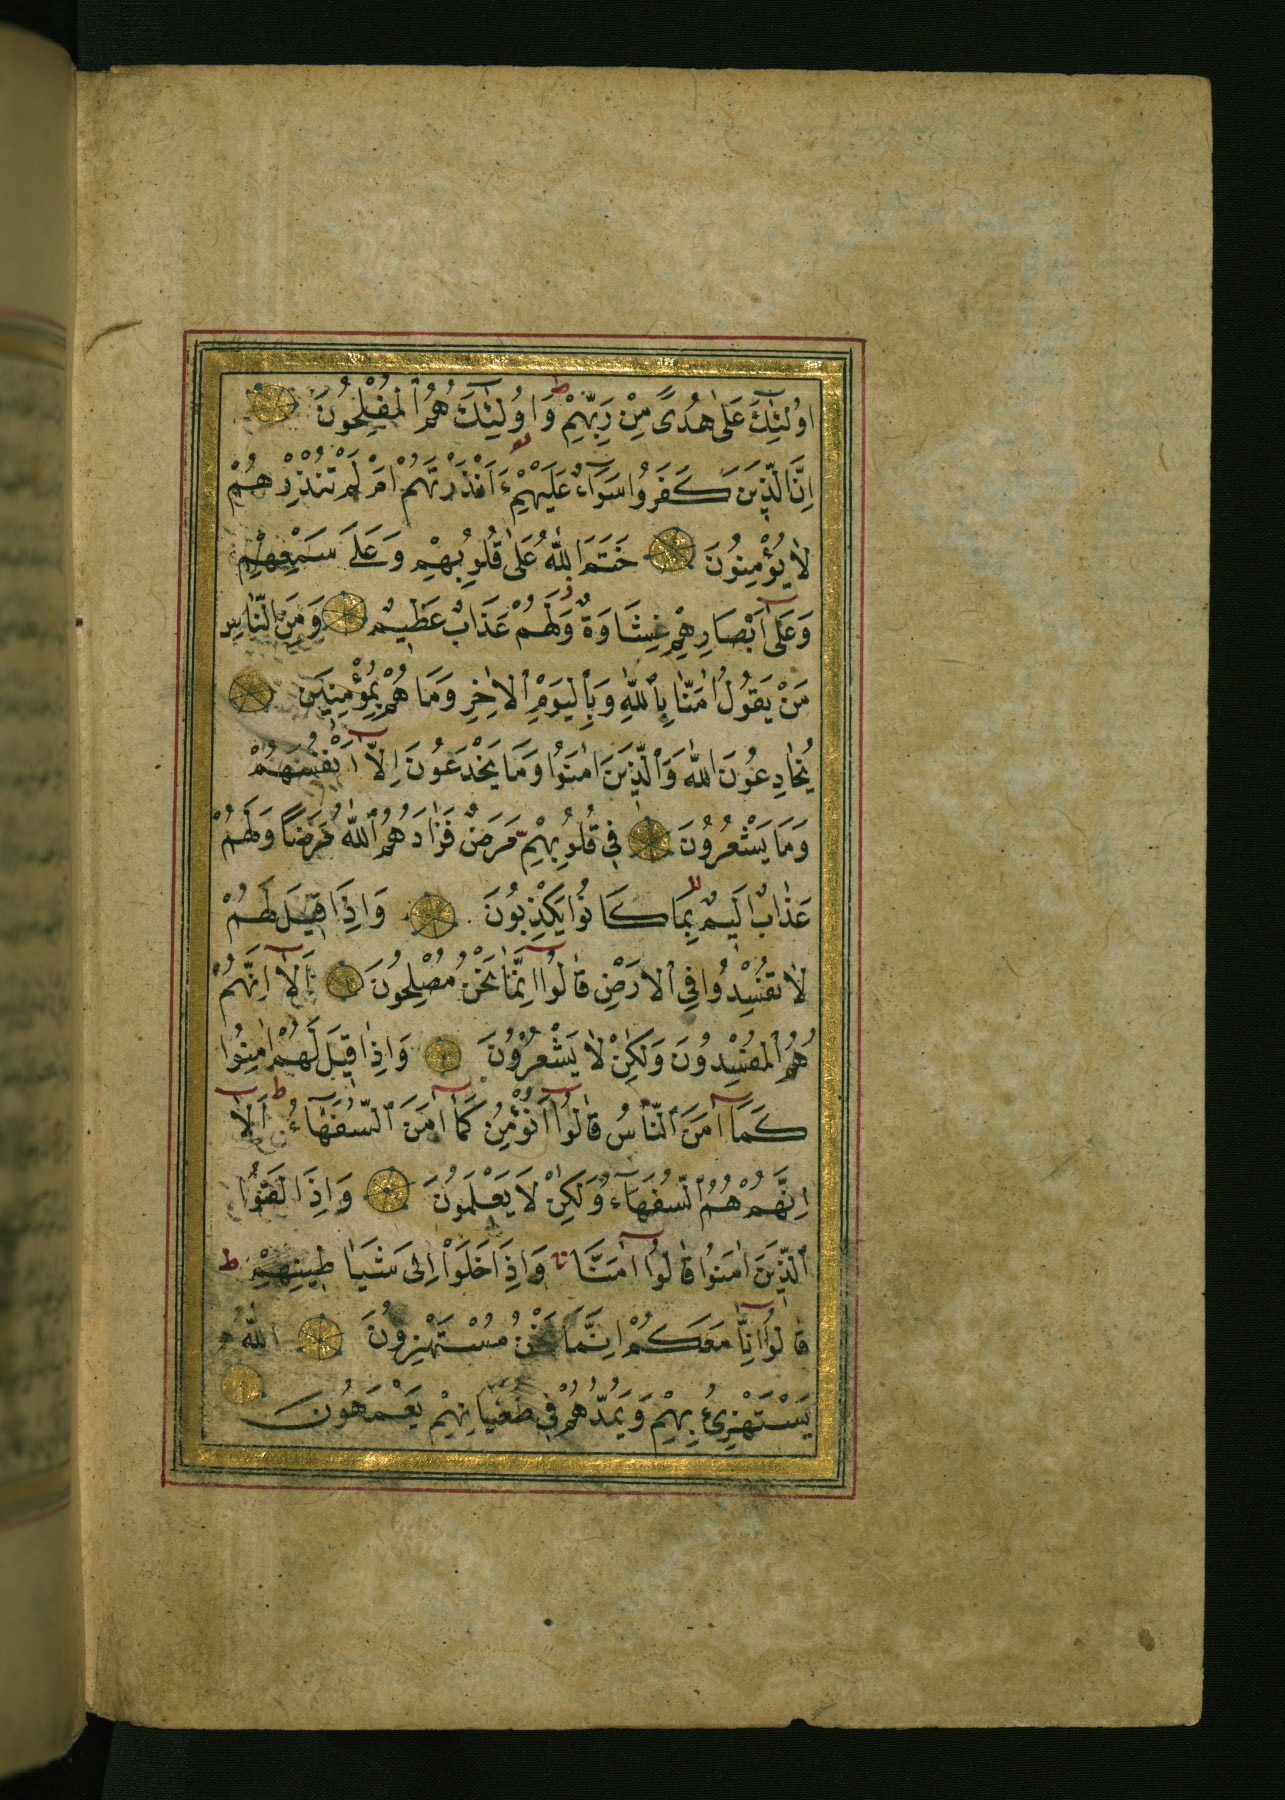 اُولٰئِكَ عَلٰى هُدًى مِنْ رَبِّهِمْ ط وَاُولٰئِكَ هُمُ الْمُفْلِحُونَ
اِنَّ الَّذِينَ كَفَرُوا سَوَاءٌ عَلَيْهِمْ ءَاَنْذَرْتَهُمْ اَمْ لَمْ تُنْذِرْهُمْ
لَا يُؤْمِنُونَ خَتَمَ اللّٰهُ عَلٰى قُلُوبِهِمْ وَعَلٰى سَمْعِهِمْ
وَعَلٰٓى اَبْصَارِهِمْ غِشَاوَةٌ ز وَلَهُمْ عَذَابٌ عَظِيمٌ وَمِنَ النَّاسِ
مَنْ يَقُولُ اٰمَنَّا بِاللّٰهِ وَبِالْيَوْمِ الْاٰخِرِ وَمَا هُمْ بِمُؤْمِنِينَ
يُخَادِعُونَ اللّٰهَ وَالَّذِينَ اٰمَنُوا وَمَا يَخْدَعُونَ اِلَّٓا اَنْفُسَهُمْ
وَمَا يَشْعُرُونَ فِي قُلُوبِهِمْ مَرَضٌ فَزَادَهُمُ اللّٰهُ مَرَضًا وَلَهُمْ
عَذَابٌ اَلِيمٌ بِمَا كَانُوا يَكْذِبُونَ وَاِذَا قِيلَ لَهُمْ
لَا تُفْسِدُوا فِي الْاَرْضِ قَالُوٓا اِنَّمَا نَحْنُ مُصْلِحُونَ اَلَٓا اِنَّهُمْ
هُمُ الْمُفْسِدُونَ وَلٰكِنْ لَا يَشْعُرُونَ وَاِذَا قِيلَ لَهُمْ اٰمِنُوا
كَمَٓا اٰمَنَ النَّاسُ قَالُوٓا اَنُؤْمِنُ كَمَٓا اٰمَنَ السُّفَهَٓاءُ ط اَلَٓا
اِنَّهُمْ هُمُ السُّفَهَٓاءُ وَلٰكِنْ لَا يَعْلَمُونَ وَاِذَا لَقُوا
الَّذِينَ اٰمَنُوا قَالُوٓا اٰمَنَّا وَاِذَا خَلَوْا اِلٰى شَيَاطِينِهِمْ ط
قَالُوٓا اِنَّا مَعَكُمْ اِنَّمَا نَحْنُ مُسْتَهْزِؤُنَ اللّٰهُ
يَسْتَهْزِئُ بِهِمْ وَيَمُدُّهُمْ فِي طُغْيَانِهِمْ يَعْمَهُونَ